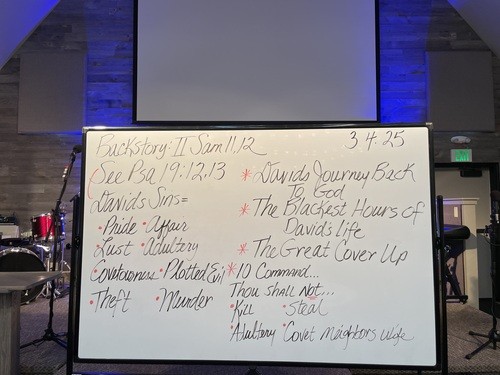 Backstory: II Sam 11,12
3 4 25
(See Psa 19:12,13
David's Sins=
• Pride • Affair
• Lust • Adultery
• Covetousness • Plotted Evil
• Theft • Murder
* Davids Journey Back
To God
* The Blackest Hours of
David's Life
* The Great Cover Up
* 10 Command...
Thou Shall Not...
• Kill • Steal
• Adultery • Covet Neighbors Wife